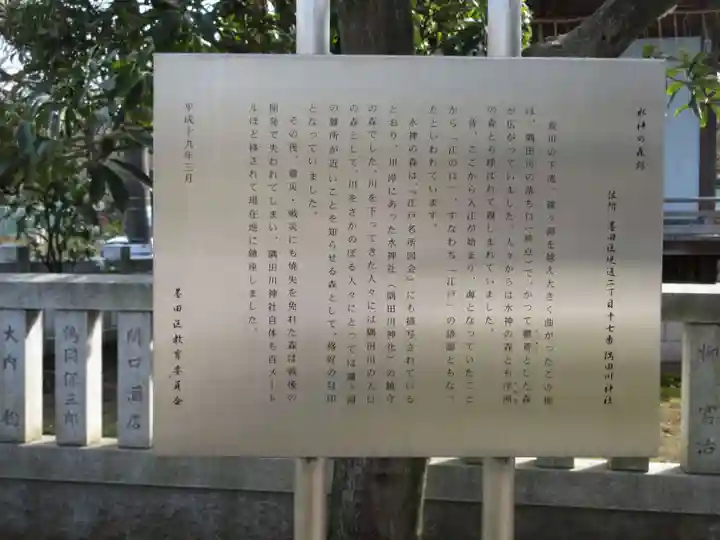 水神の森跡
住所 墨田区堤通二丁目十七番 隅田川神社
荒川の下流、鐘ヶ淵を越え大きく曲がったこの地
は、隅田川の落ち口(終点)で、かつて鬱蒼とした森
が広がっていました。人々からは水神の森とも浮洲
の森とも呼ばれて親しまれていました。
昔、ここから入江が始まり、海となっていたここ
から「江の口」、すなわち「江戸」の語源ともなっ
たといわれています。
水神の森は、『江戸名所図会』にも描写されている
とおり、川岸にあった水神社(隅田川神社)の鎮守
の森でした。川を下ってきた人々には隅田川の入口
の森として、川をさかのぼる人々にとっては鐘ヶ淵
の難所が近いことを知らせる森として、格好の目印
となっていました。
その後、震災・戦災にも焼失を免れた森は戦後の
開発で失われてしまい、隅田川神社自体も百メート
ルほど移されて現在地に鎮座しました。
平成十九年三月
墨田区教育委員会
関口商店
鶴岡保三郎
大内
柳 宮治